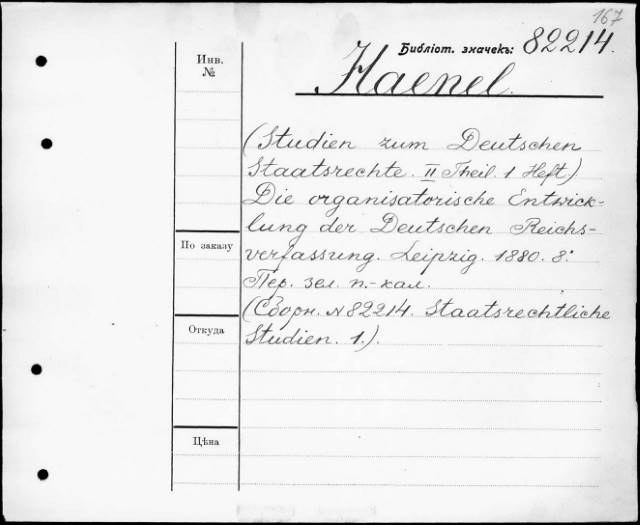 167
Библіот. значекъ: 82214.
Haenel.
Инв.
№
(Studien zum Deutschen
Staatsrechte. II Theil. 1 Heft.)
Die organisatorische Entwick-
lung der Deutschen Reichs-
По заказу
verfassung. Leipzig. 1880. 8º.
Пер. зел. п.-кал.
(Сборн. N 82214. Staatsrechtliche
Откуда
Studien. 1.).
Цѣна